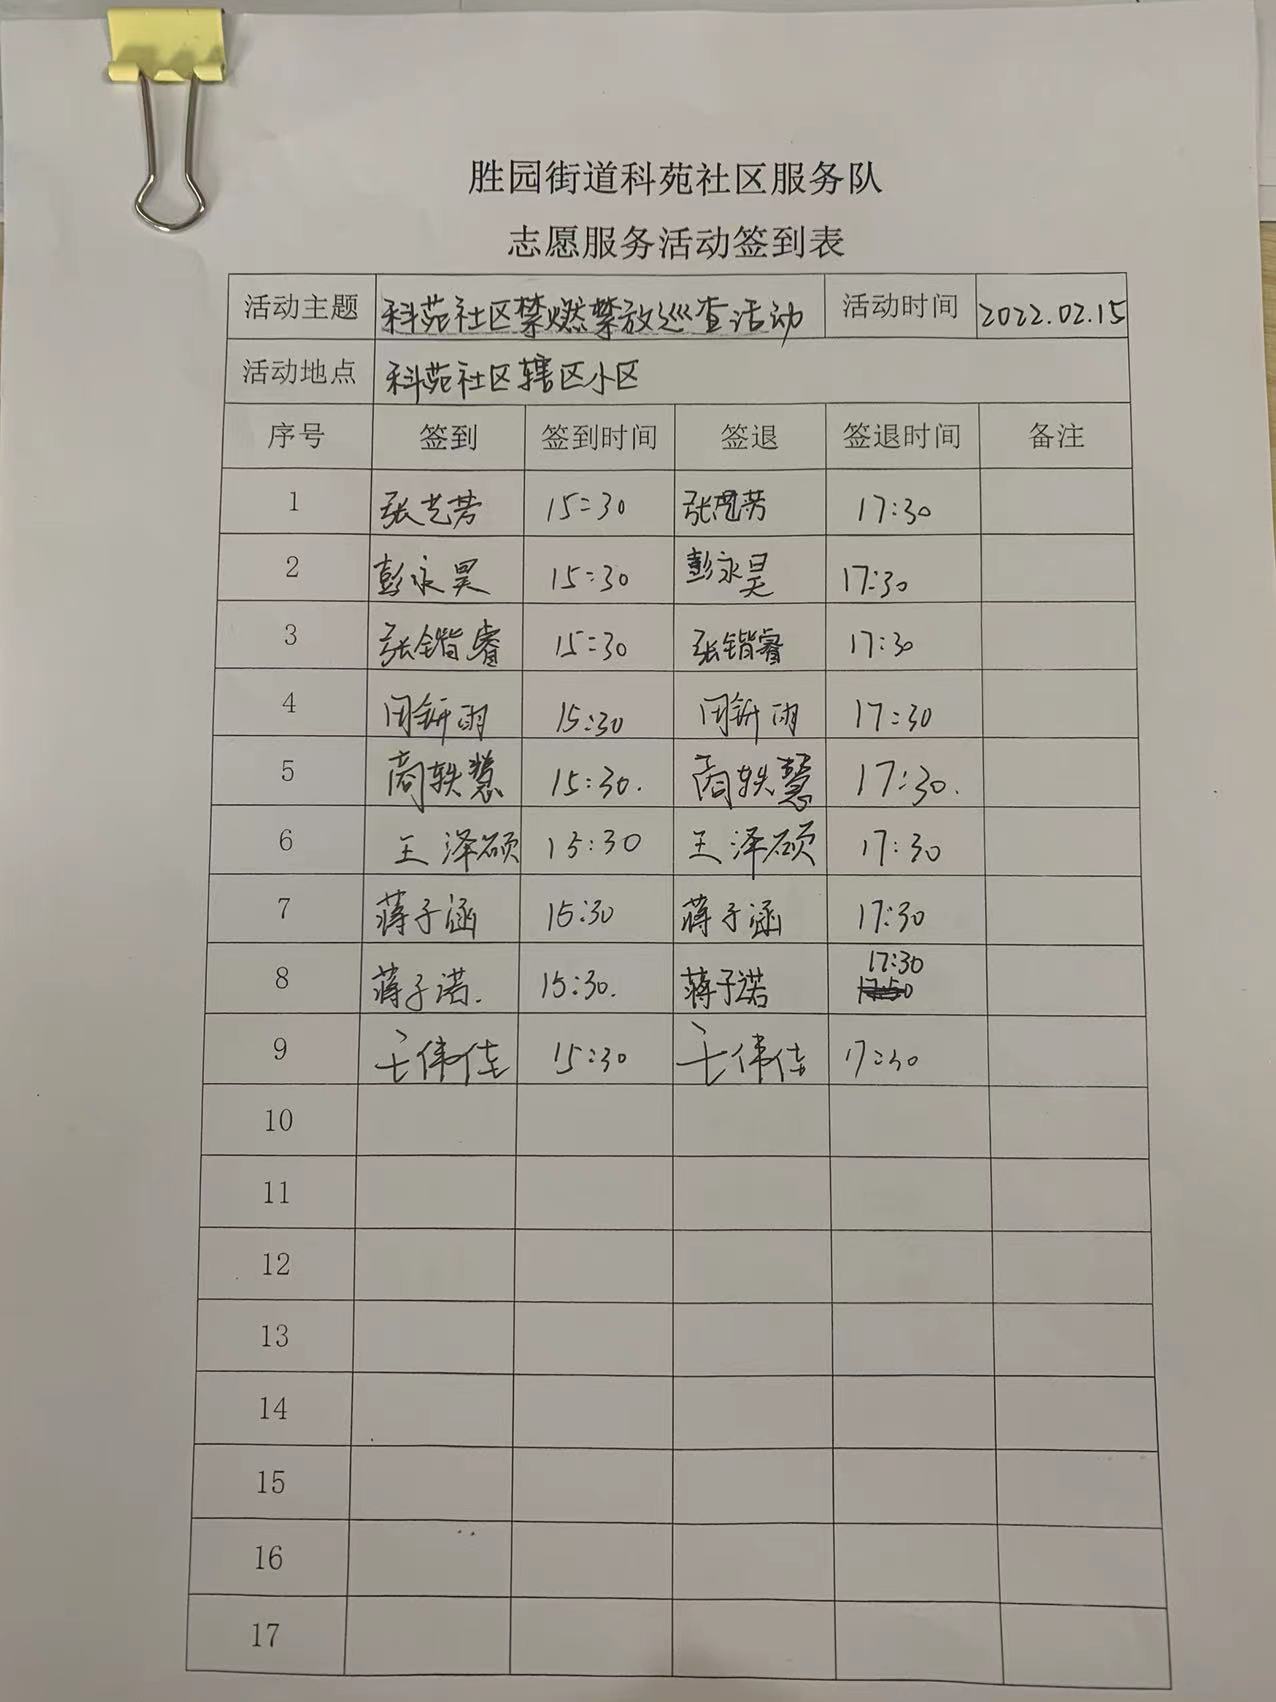 胜园街道科苑社区服务队
志愿服务活动签到表
活动主题 科苑社区禁燃禁放巡查活动 活动时间 2022.02.15
活动地点 科苑社区辖区小区
序号 签到 签到时间 签退 签退时间 备注
1 张艺芳 15:30 张艺芳 17:30
2 彭永昊 15:30 彭永昊 17:30
3 张锴睿 15:30 张锴睿 17:30
4 闫新雨 15:30 闫新雨 17:30
5 商轶慧 15:30. 商轶慧 17:30.
6 王泽硕 15:30 王泽硕 17:30
7 蒋子涵 15:30 蒋子涵 17:30
8 蒋子诺. 15:30. 蒋子诺 17:30
9 王伟佳 15:30 王伟佳 17:30
10
11
12
13
14
15
16
17